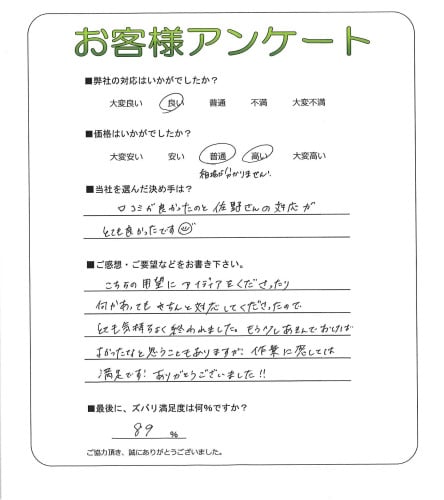 お客様アンケート
■弊社の対応はいかがでしたか?
大変良い 良い 普通 不満 大変不満
■価格はいかがでしたか?
大変安い 安い 普通 高い 大変高い
相場が分かりません!
■当社を選んだ決め手は?
口コミが良かったのと佐野さんの対応が
とても良かったです
■ご感想・ご要望などをお書き下さい。
こちらの用望にアイディアをくださったり
何かあってもきちんと対応してくださったので
とても気持ちよく終われました。もう少し
よかったなと思うこともありますが、作業に関しては
満足です! ありがとうございました!!
■最後に、ズバリ満足度は何%ですか?
89 %
ご協力頂き、誠にありがとうございました。